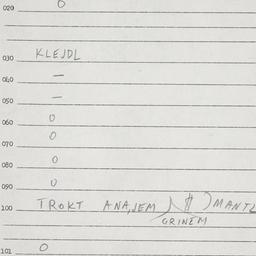 020 0
030 KLEJDL
040 —
050 —
060 0
070 0
080 0
090 0
100 TROKT ANA,JEM MANTL
GRINEM
101 0